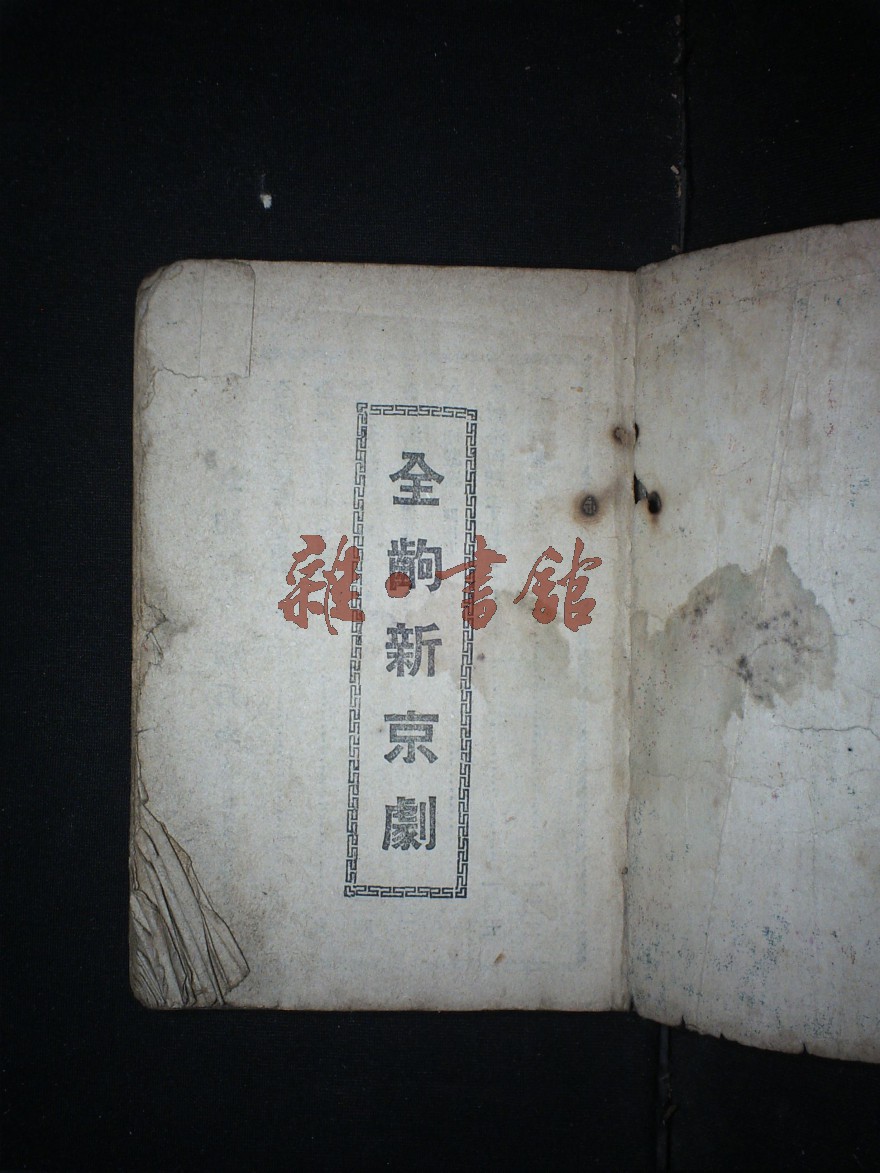 全齣新京劇
雜·書館